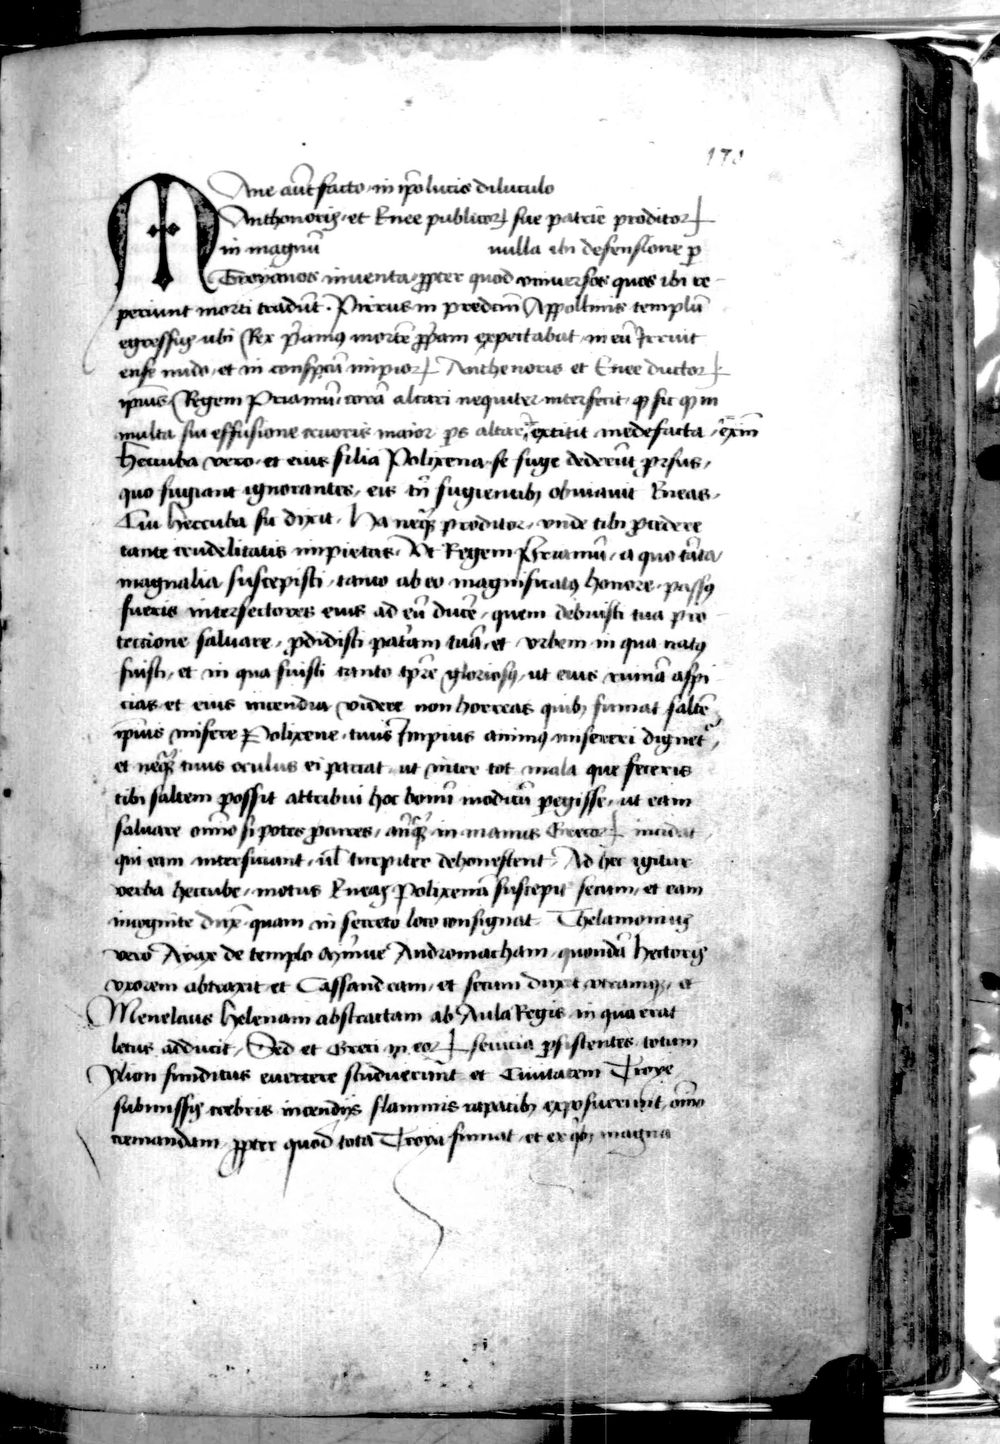 170
Mane aūt facto in ip̄o lucis diluculo
Anthenoris et Enee publicoꝝ sue patrie proditoꝝ
in magnū nulla ibi defensione ꝑ
Troyanos inventa ꝓpter quod vniversos quos ibi re-
periunt morti tradūt. Pirrus in predcm̄ Appollinis templū
egressus ubi Rex p̄amus mortē ꝓp̄am expectabat in eū Irruit
ense nudo et in conspc̄u impioꝝ Anthenoris et Enee ductoꝝ
ip̄ius Regem Priamū corā altari nequiter interfecit
multa sui effusione cruoris maior ꝑs altaris extitit madefacta
Heccuba vero et eius filia Polixena se fuge dederūt
quo fugiant ignorantes eis tn̄ fugientibꝫ obviavit Eneas
Cui Heccuba sic dixit Ha neqꝫ proditor unde tibi ꝓcedere
tante crudelitatis impietas Vt Regem Priamū a quo tāta
magnalia suscepisti tanto ab eo magnificatus honore passus
fueris interfectores eius ad eū ducē quem debuisti tua pro
teccione salvare ꝓdidisti pat̄am tuā et vrbem in qua natus
fuisti et in qua fuisti tanto tp̄re gloriosus ut eius ruinā aspi
cias et eius incendia videre non horreas quibꝫ fumat saltē
ip̄ius misere Polixene tuus Impius animus misereri dignet᷑
et neqꝫ tuus oculus ei parcat ut inter tot mala que feceris
tibi saltem possit attribui hoc bonū modicū ꝑegisse ut eam
salvare om̄ino si potes ꝓcures anq̄ in manus Grecoꝝ incidat
qui eam interficiant ul̄ turpiter dehonestent Ad hec igitur
verba heccube motus Eneas Polixenā suscepit secum et eam
incognite duxit quam in secreto loco consignat Thelamonius
vero Ayax de templo Minerve Andromacham quondā hectoris
vxorem abtraxit et Cassandram et secum duxit utramqꝫ et
Menelaus helenam abstractam ab Aula Regis in qua erat
letus adducit Sed et Greci in eoꝝ sevicia ꝑsistentes totum
Ylion funditus evertere studuerunt et Civitatem Troye
submissis crebris incendijs flammis rapacibꝫ exposuerunt om̄ino
cremandam ꝓpter quod tota Troya fumat et magna